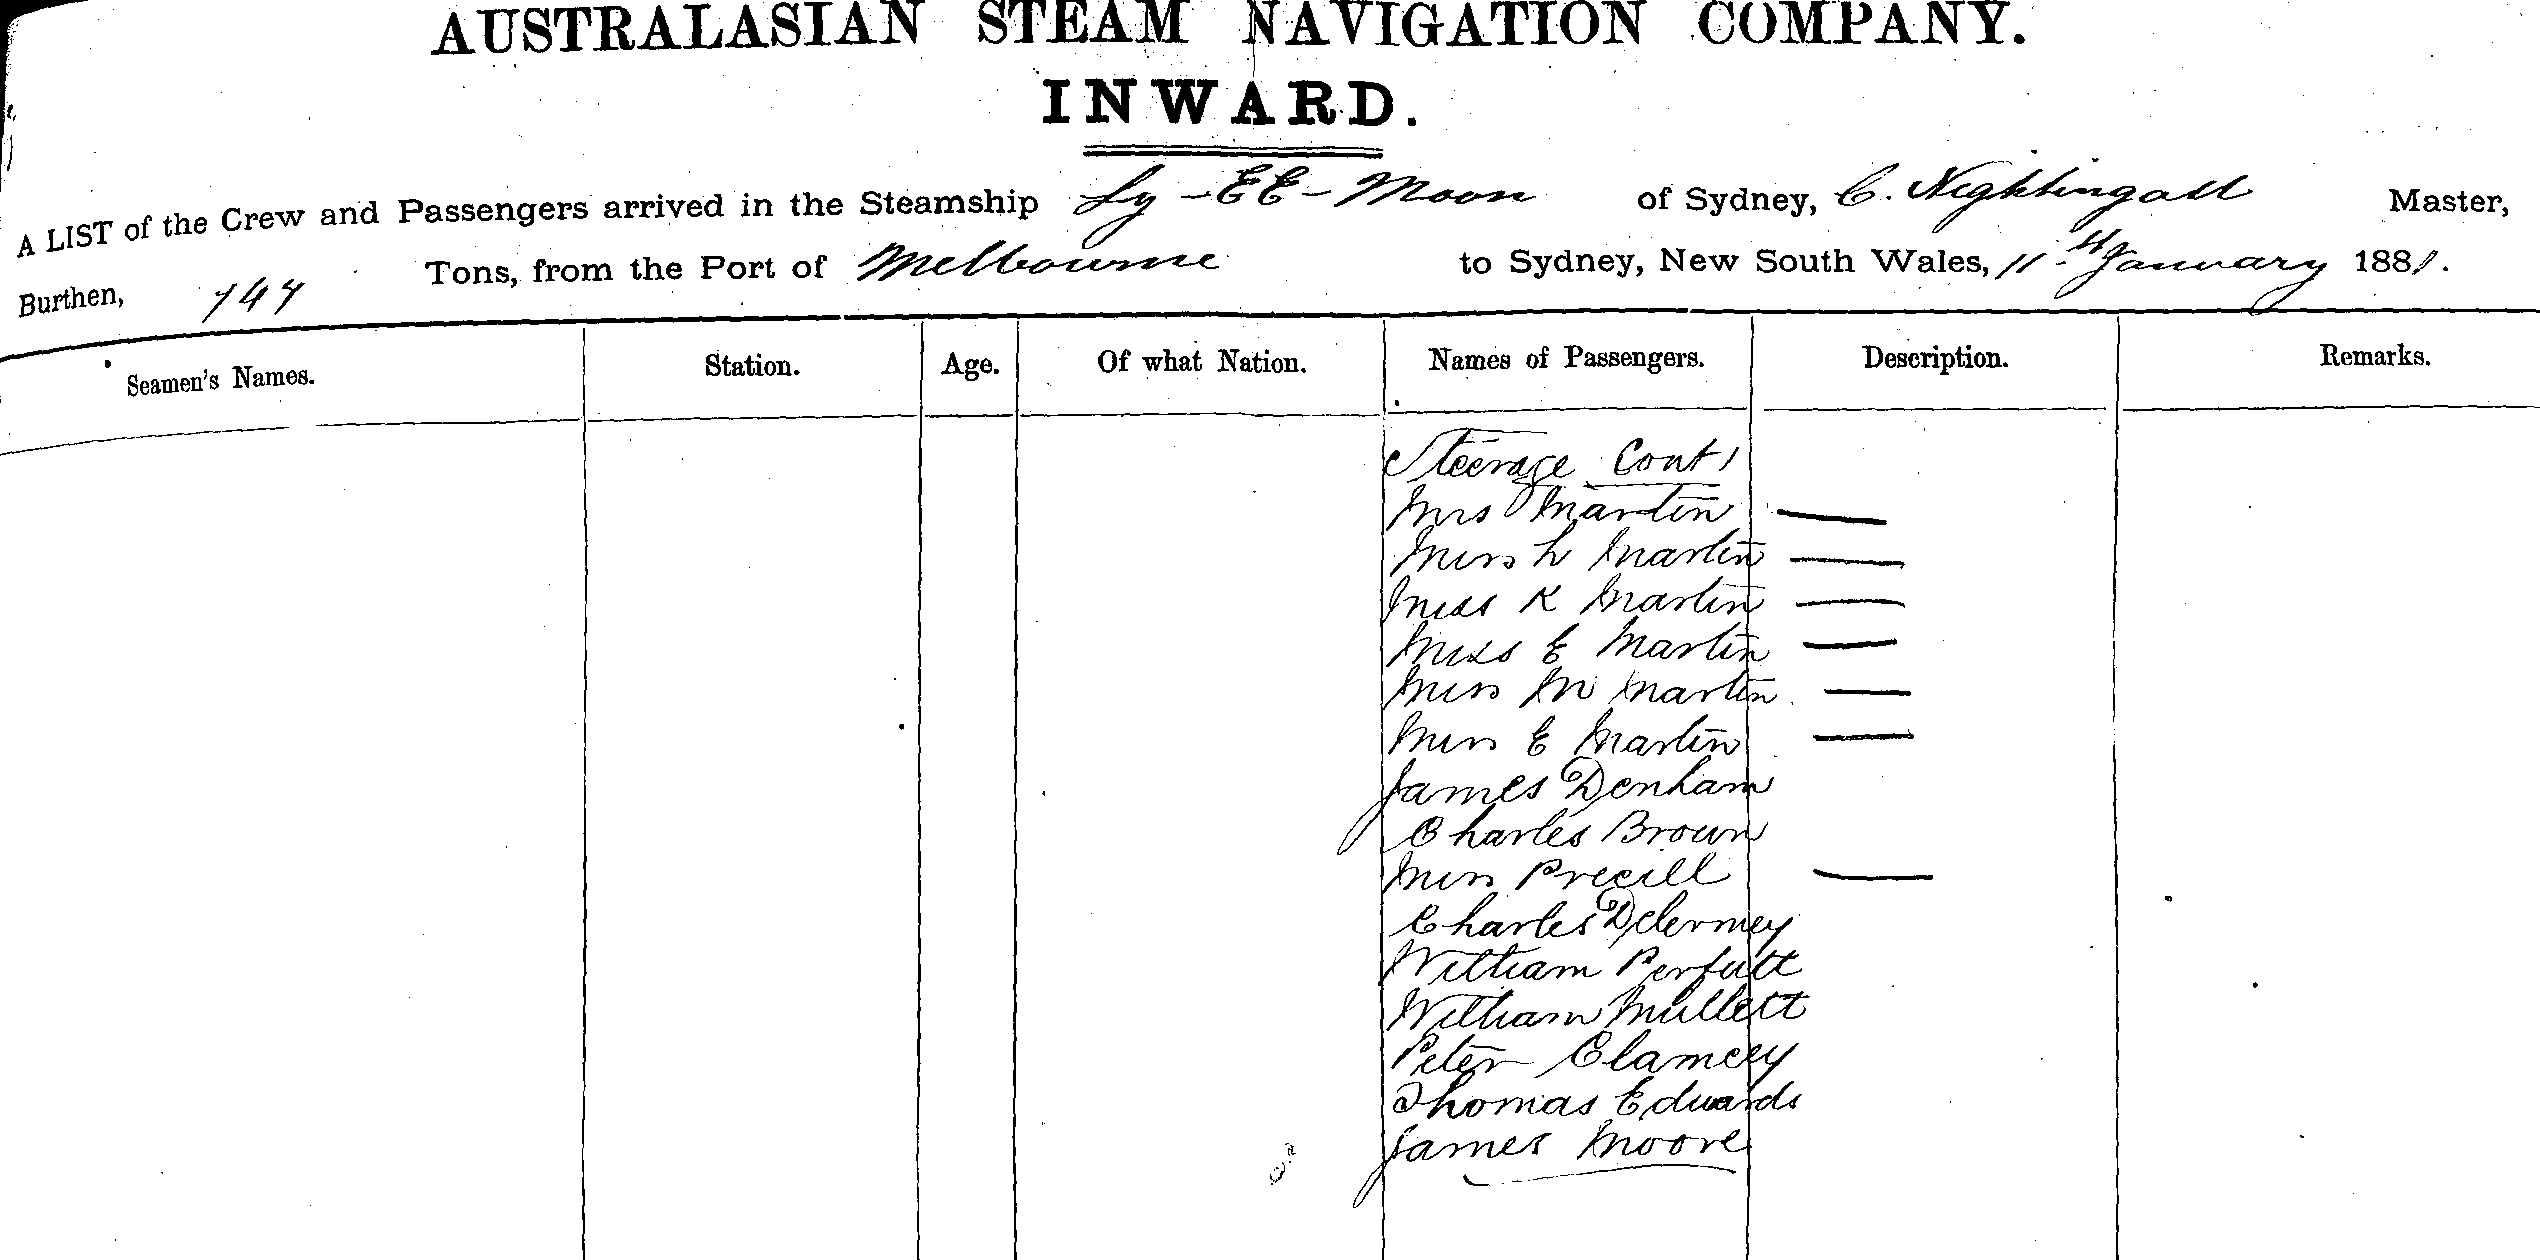 AUSTRALASIAN STEAM NAVIGATION COMPANY.
INWARD.
A LIST of the Crew and Passengers arrived in the Steamship Ly-EE-Moon of Sydney, C. Nightingall Master,
Burthen, 747 Tons, from the Port of Melbourne to Sydney, New South Wales, 11th January 1881.
Seamen's Names. Station. Age. Of what Nation. Names of Passengers. Description. Remarks.
Steerage Cont
Mrs Martin
Miss L Martin
Miss K Martin
Miss E Martin
Miss M Martin
Miss E Martin
James Denham
Charles Brown
Miss
Charles
William
William Mullett
Peter Clamcey
Thomas Edwards
James Moore